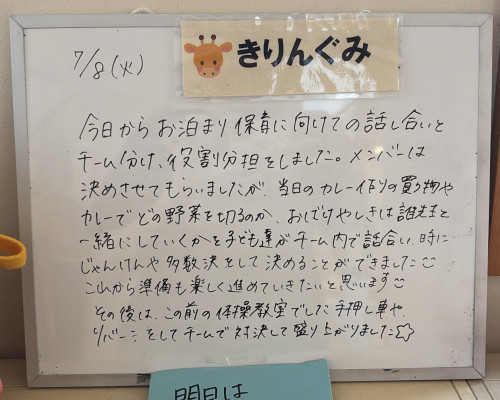 きりんぐみ
7/8(火)
今日からお泊まり保育に向けての話し合いと
チーム分け、役割分担をしました。メンバーは
決めさせてもらいましたが、当日のカレー作りの買い物や
カレーでどの野菜を切るのか、おばけやしきは誰先生と
一緒にしていくかを子ども達がチーム内で話合い、時に
じゃんけんや多数決をして決めることができました
これから準備も楽しく進めていきたいと思います
その後は、この前の体操教室でした手押し車や、
リバーシをしてチームで対決して盛り上がりました☆
明日は